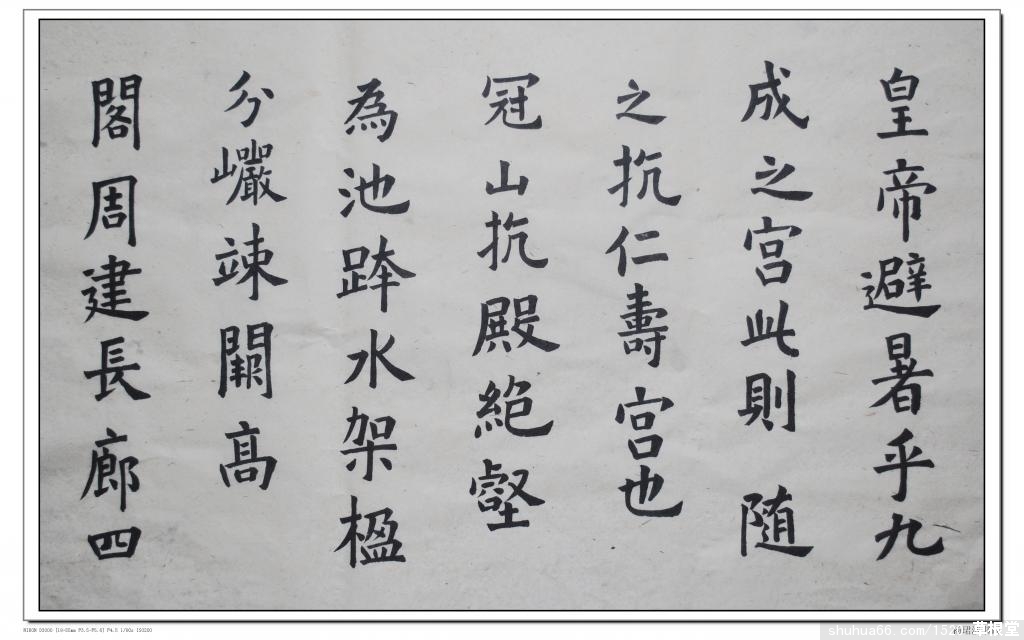 皇帝避暑乎九
成之宫此則随
之抗仁壽宫也
冠山抗殿絶壑
為池跨水架楹
分巖竦闕髙
閣周建長廊四
NIKON D3000 [18-55mm F3.5-F5.6] F4.5 1/60s ISO200
shuhua66.com/152
草根堂